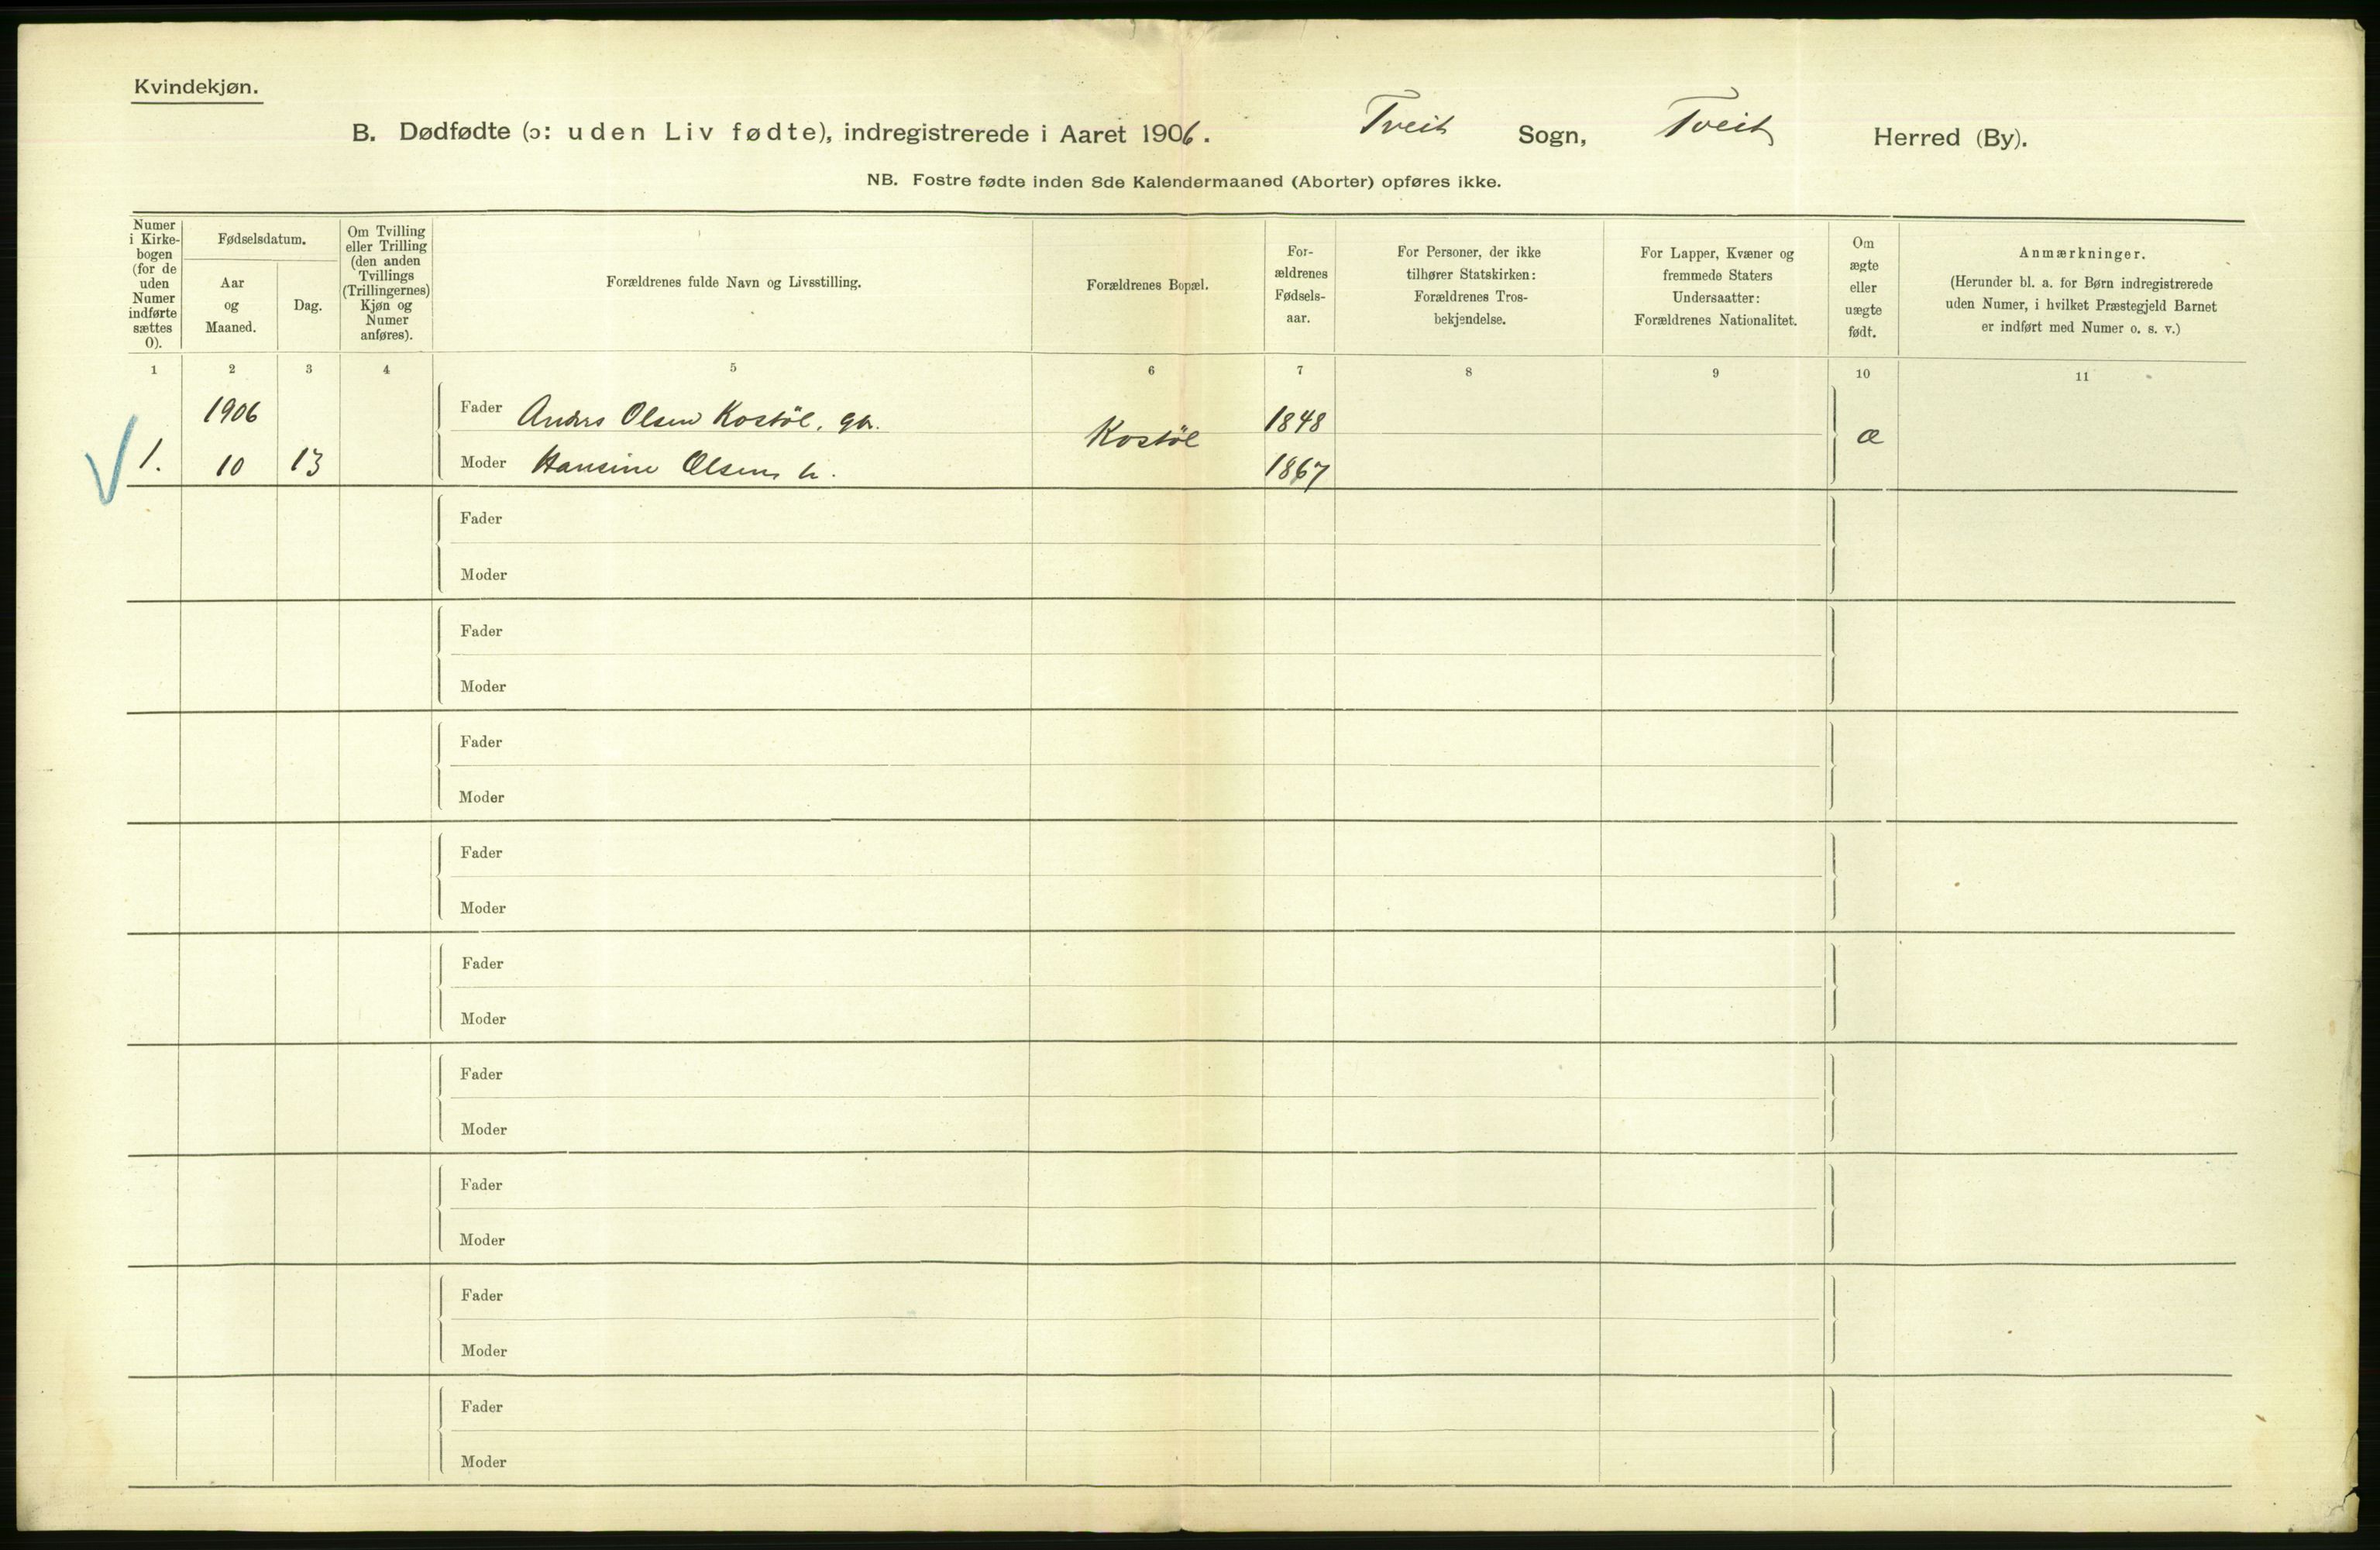 Kvindekjøn.
B. Dødfødte (ɔ: uden Liv fødte), indregistrerede i Aaret 1906. Tveit Sogn, Tveit Herred (By).
NB. Fostre fødte inden 8de Kalendermaaned (Aborter) opføres ikke.
Numer
i Kirke-
bogen
(for de
uden
Numer
indførte
sættes
0).
Fødselsdatum.
Aar
og
Maaned.
Dag.
Om Tvilling
eller Trilling
(den anden
Tvillings
(Trillingernes)
Kjøn og
Numer
anføres).
Forældrenes fulde Navn og Livsstilling.
Forældrenes Bopæl.
For-
ældrenes
Fødsels-
aar.
For Personer, der ikke
tilhører Statskirken:
Forældrenes Tros-
bekjendelse.
For Lapper, Kvæner og
fremmede Staters
Undersaatter:
Forældrenes Nationalitet.
Om
ægte
eller
uægte
født.
Anmærkninger.
(Herunder bl. a. for Børn indregistrerede
uden Numer, i hvilket Præstegjeld Barnet
er indført med Numer o. s. v.)
1 2 3 4 5 6 7 8 9 10 11
1906 Fader Anders Olsen Kostöl, gbr. 1848
Kostöl æ
1. 10 13 Moder Hansine Olsen h. 1867
Fader
Moder
Fader
Moder
Fader
Moder
Fader
Moder
Fader
Moder
Fader
Moder
Fader
Moder
Fader
Moder
Fader
Moder